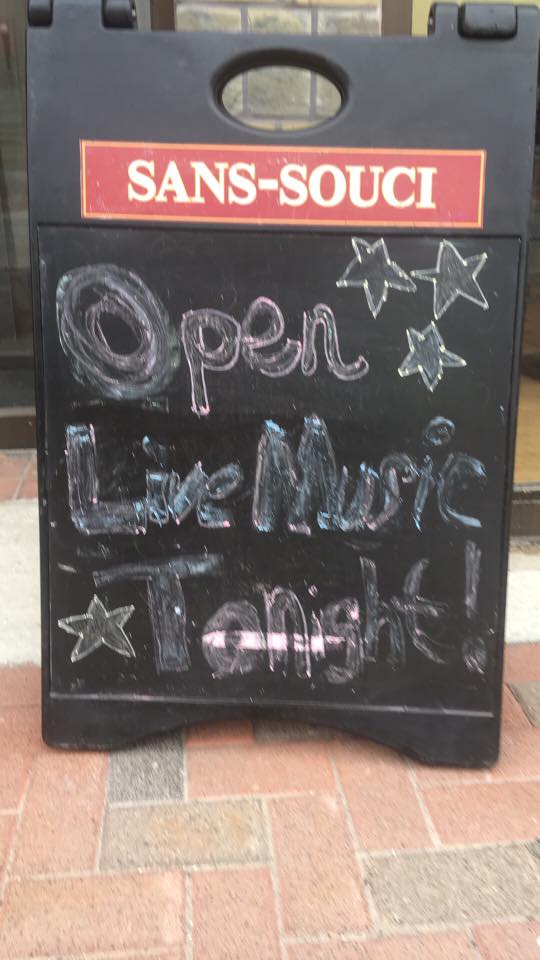 SANS-SOUCI
Open
Live Music
Tonight!